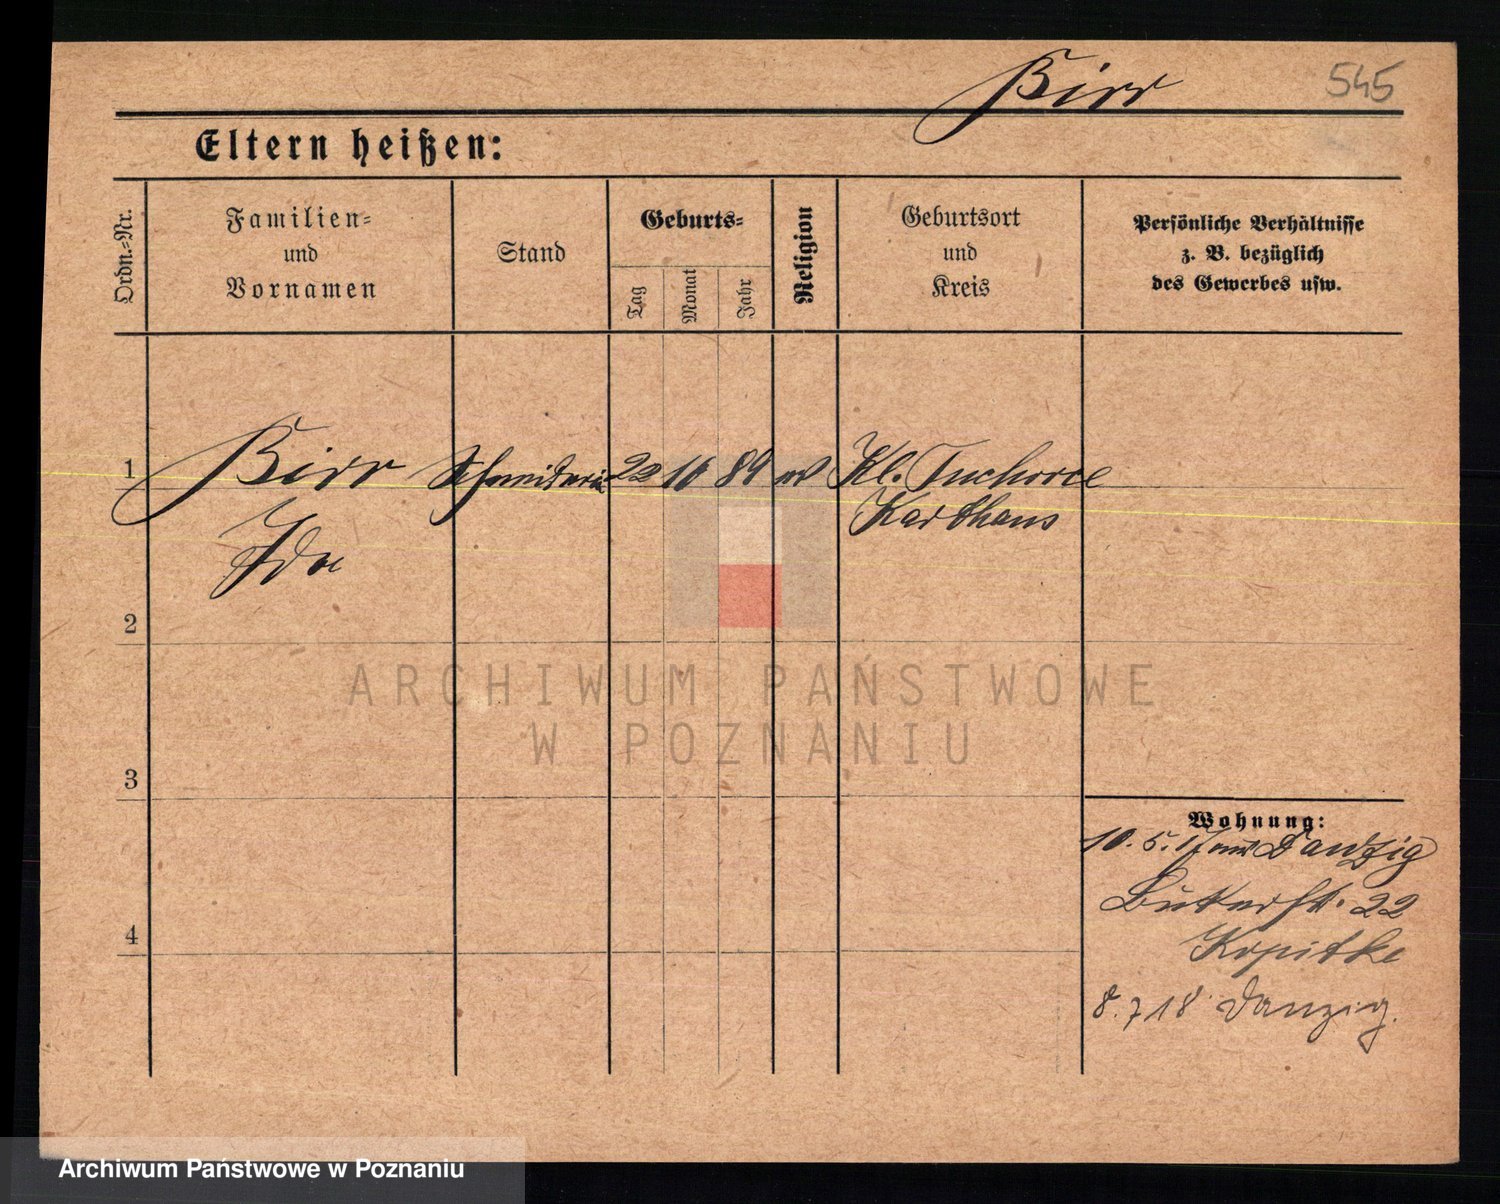 Birr
545
Eltern heißen:
Ordn.=Nr.
Familien=
und
Vornamen
Stand
Geburts=
Tag
Monat
Jahr
Religion
Geburtsort
und
Kreis
Persönliche Verhältnisse
z. B. bezüglich
des Gewerbes usw.
1
Birr Schneiderin 22 10 89 Kl. Tuchorce
Ida
Karthaus
2
3
4
Wohnung:
10. 5. 17 aus Danzig
Butterstr. 22
Kopitke
8. 7 18 Danzig.
ARCHIWUM PAŃSTWOWE
W POZNANIU
Archiwum Państwowe w Poznaniu